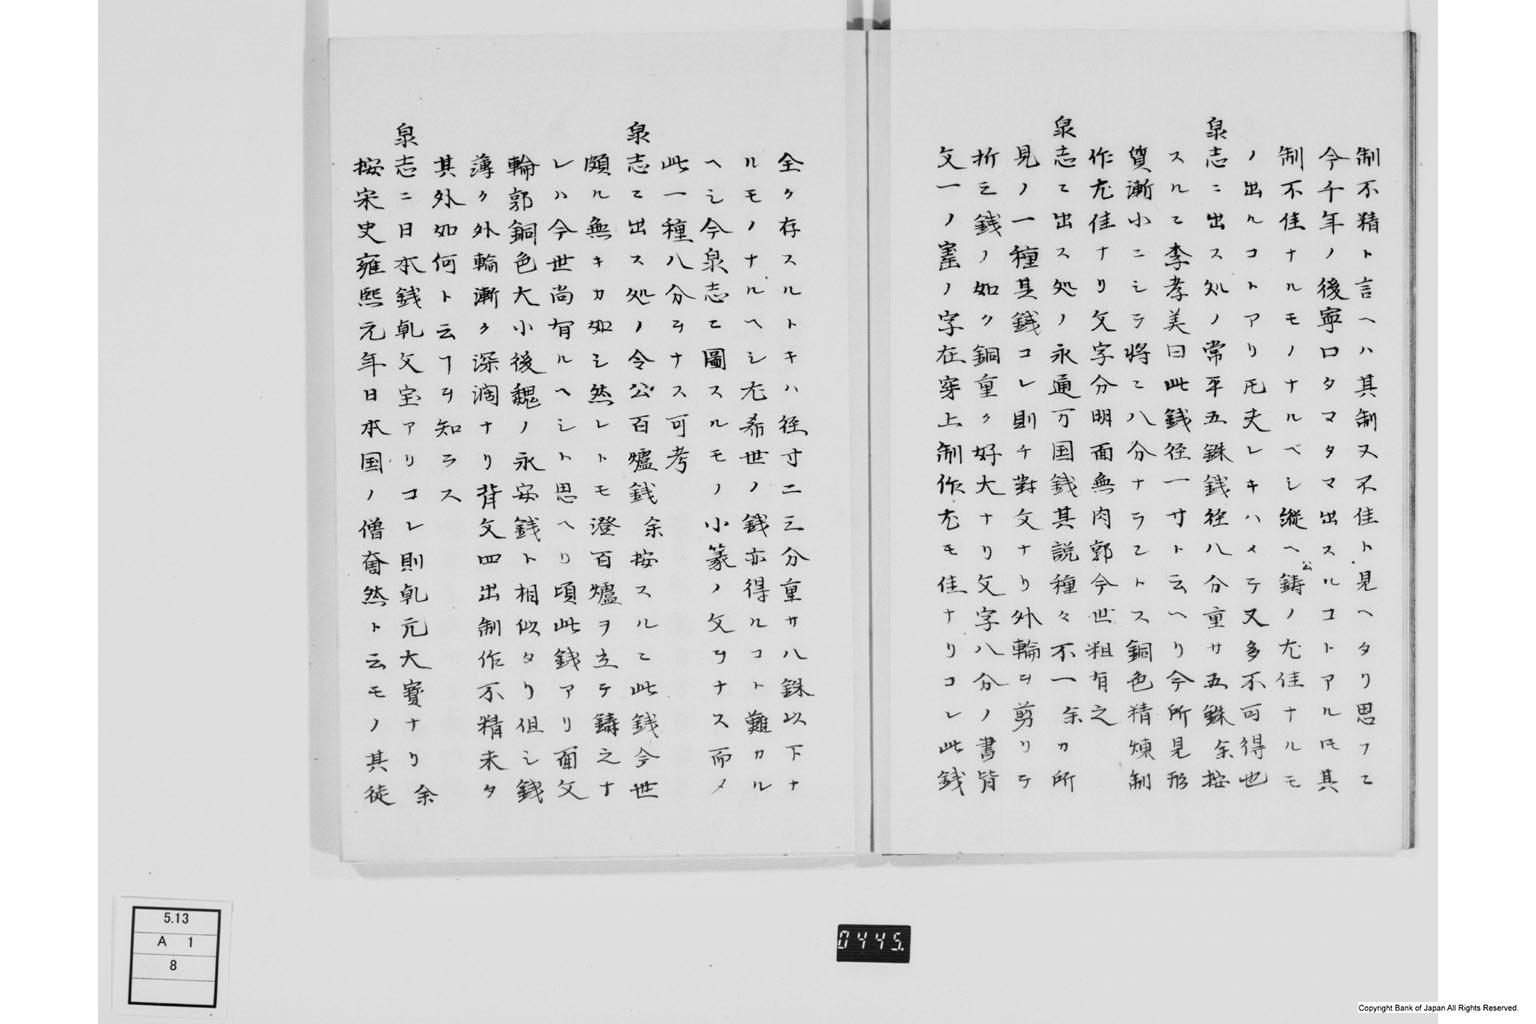 制不精ト言ヘハ其制又不佳ト見ヘタリ思フニ
今千年ノ後寧ロタマタマ出スルコトアルモ其
制不佳ナルモノナルベシ縦ヘ公鋳ノ尤佳ナルモ
ノ出ルコトアリ𪜈夫レキハメテ又多不可得也
泉志ニ出ス処ノ常平五銖銭径八分重サ五銖余按
スルニ李孝美曰此銭径一寸ト云ヘリ今所見形
質漸小ニシテ将ニ八分ナラントス銅色精煉制
作尤佳ナリ文字分明面無肉郭今世粗有之
泉志ニ出ス処ノ永通万国銭其説種々不一余カ所
見ノ一種其銭コレ則チ對文ナリ外輪ヲ剪リテ
折三銭ノ如ク銅重ク好大ナリ文字八分ノ書皆
文一ノ ノ字在穿上制作尤モ佳ナリコレ此銭
全ク存スルトキハ径寸二三分重サ八銖以下ナ
ルモノナルヘシ尤希世ノ銭亦得ルコト難カル
ヘシ今泉志ニ圖スルモノ小篆ノ文ヲナス而メ
此一種八分ヲナス可考
泉志ニ出ス処ノ令公百爐銭余按スルニ此銭今世
頗ル無キカ如シ然レトモ澄百爐ヲ立テ鑄之ナ
レハ今世尚有ルヘシト思ヘリ頃此銭アリ面文
輪郭銅色大小後魏ノ永安銭ト相似タリ但シ銭
薄ク外輪漸ク深濶ナリ背文四出制作不精未タ
其外如何ト云フヿヲ知ラス
泉志ニ日本銭乹文宝アリコレ則乹元大寳ナリ余
按宋史雍熙元年日本国ノ僧奝然ト云モノ其徒
5.13
A 1
8
0445.
Copyright Bank of Japan All Rights Reserved.